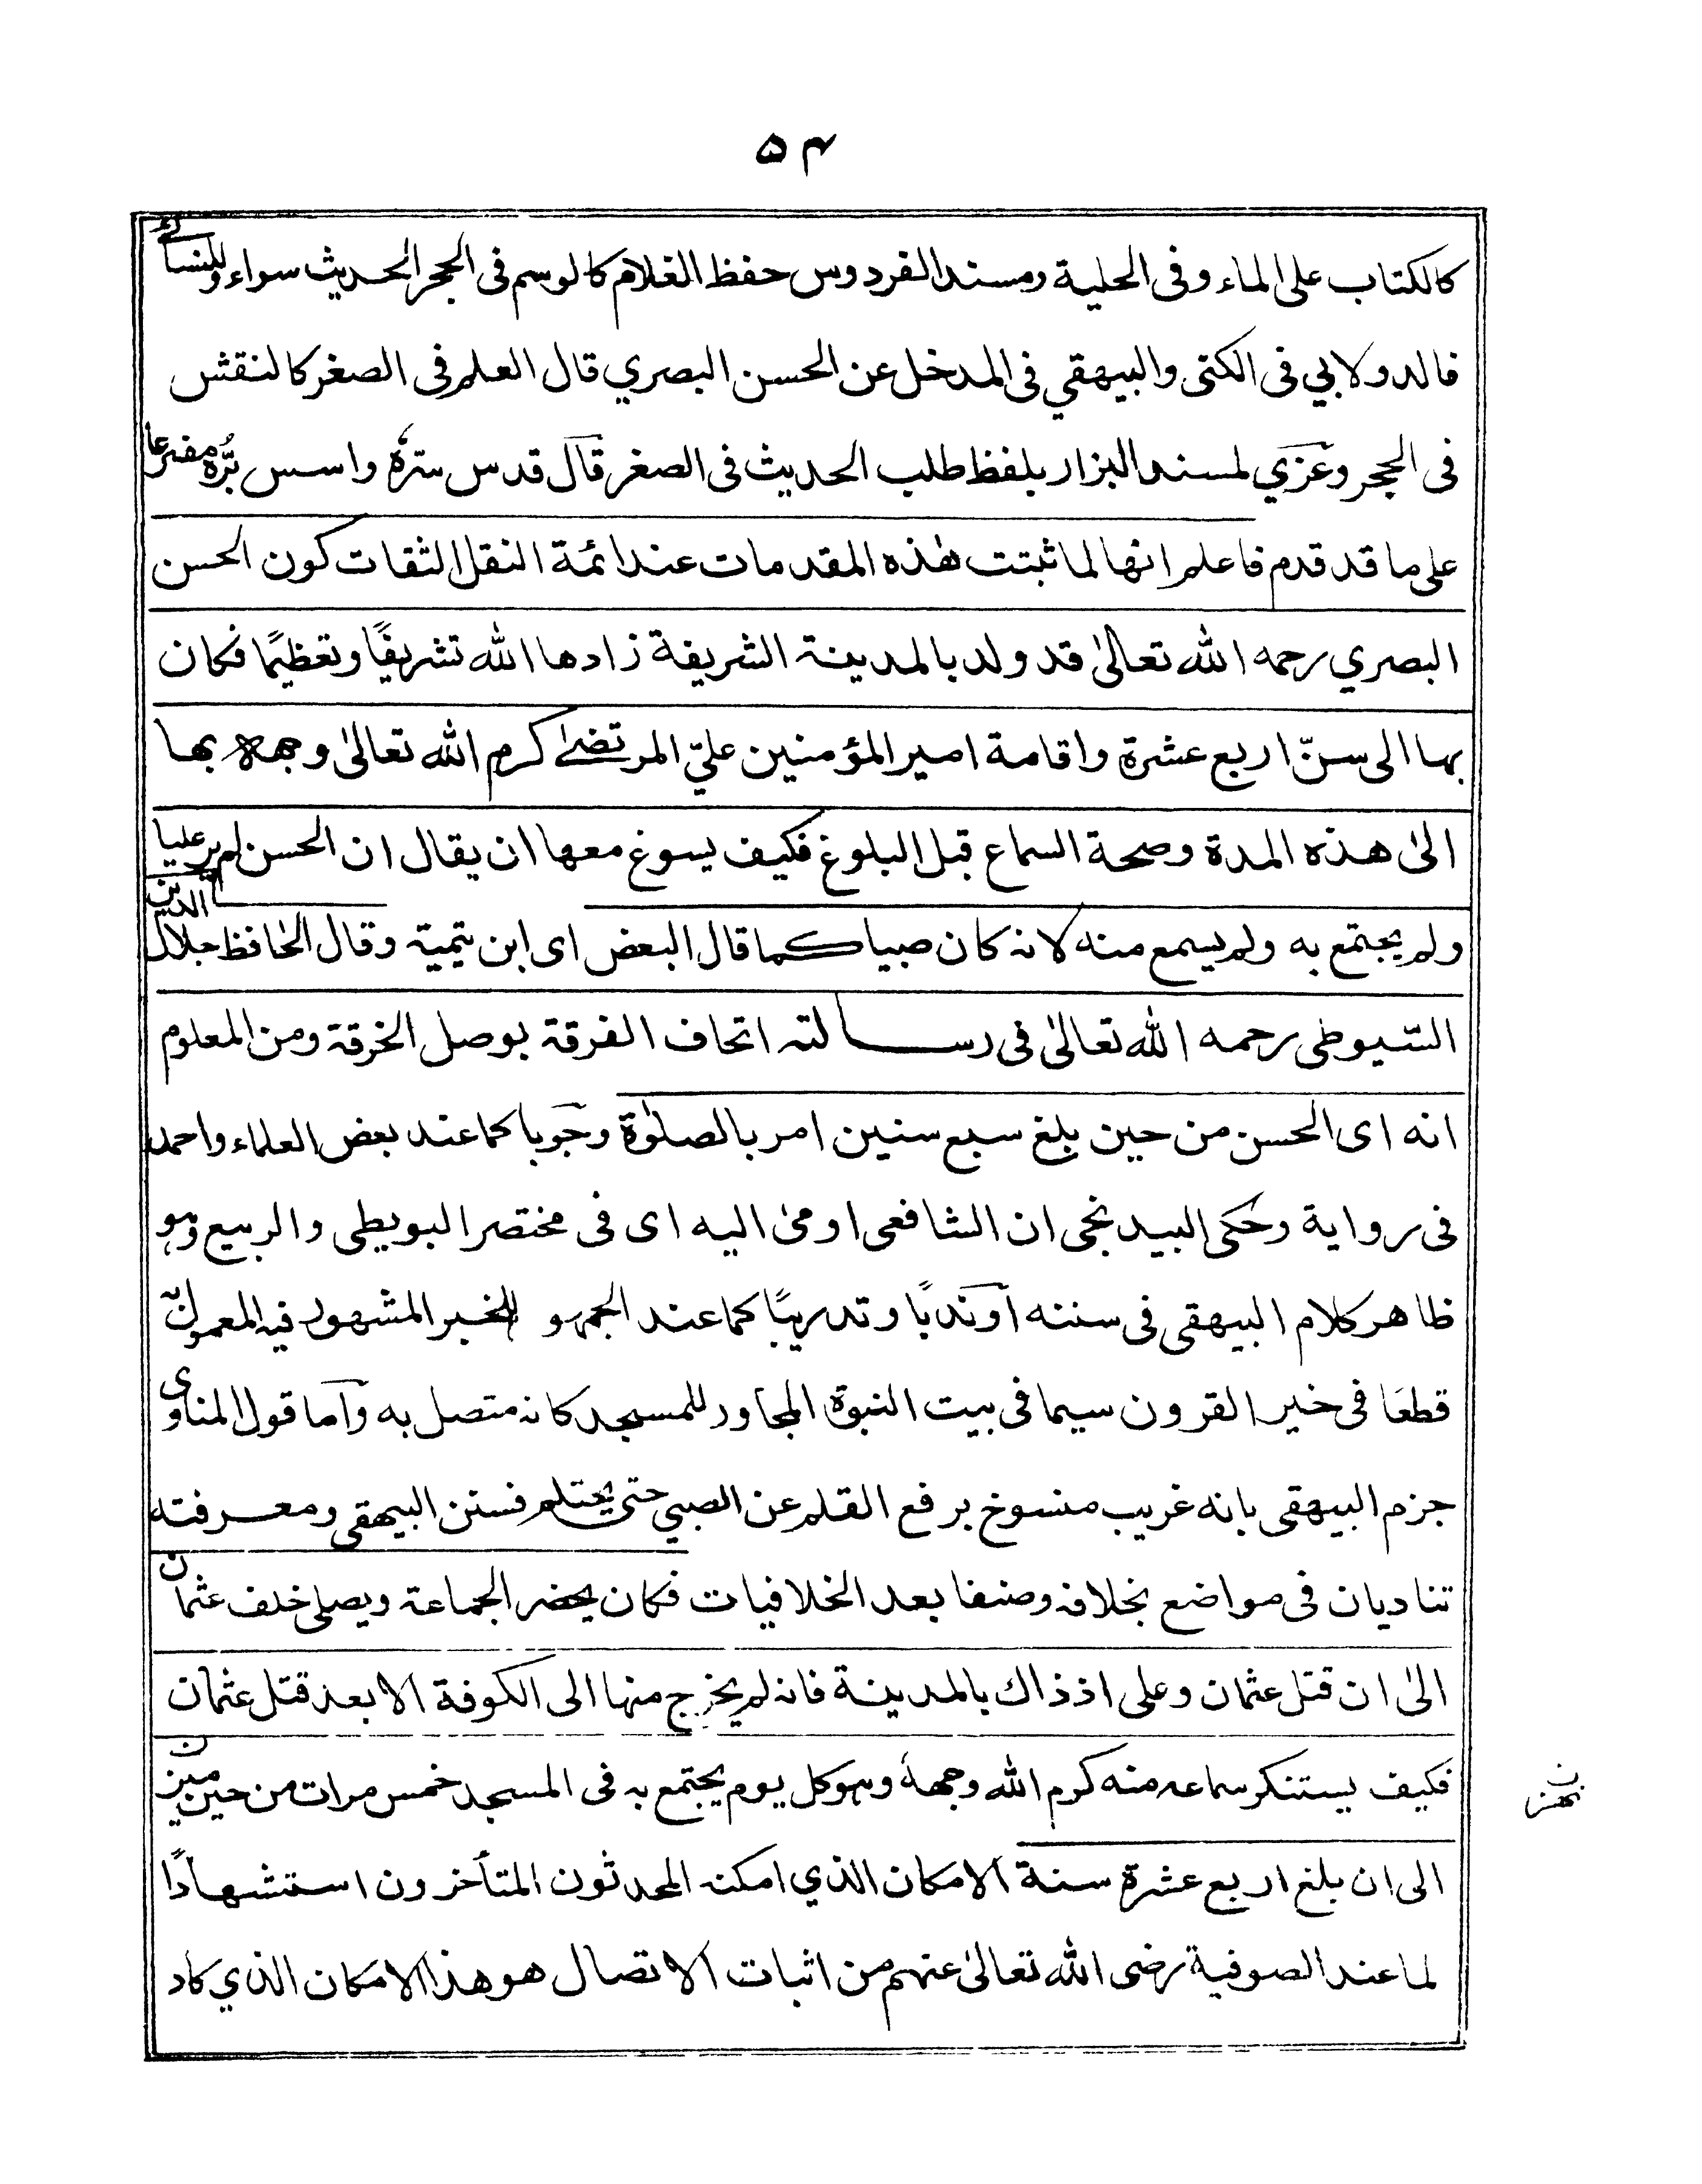 ۵۴
كالكتاب على الماء وفى الحلية ومسند الفردوس حفظ الغلام كالوسم فى الحجر الحديث سواء وللنسائى
فالدولابي فى الكنى والبيهقي فى المدخل عن الحسن البصري قال العلم فى الصغر كالنقش
فى الحجر وعزي لمسند البزار بلفظ طلب الحديث فى الصغر قال قدس سره واسس بره مفرعا
على ما قد قدم فاعلم انها لما ثبتت هذه المقدمات عند ائمة النقل الثقات كون الحسن
البصري رحمه الله تعالىٰ قد ولد بالمدينة الشريفة زادها الله تشريفًا وتعظيمًا فكان
بها الى سنّ اربع عشرة واقامة امير المؤمنين عليّ المرتضىٰ كرم الله تعالىٰ وجهه بها
الىٰ هذه المدة وصحة السماع قبل البلوغ فكيف يسوغ معها ان يقال ان الحسن لم ير عليا
ولم يجتمع به ولم يسمع منه لانه كان صبيا كما قال البعض اى ابن تيمية وقال الحافظ جلال الدين
السّيوطى رحمه الله تعالىٰ فى رسالته اتحاف الفرقة بوصل الخرقة ومن المعلوم
انه اى الحسن من حين بلغ سبع سنين امر بالصلوٰة وجوبا كما عند بعض العلماء واحمد
فى رواية وحكى البيدنجى ان الشافعى اومىٰ اليه اى فى مختصر البويطى والربيع وهو
ظاهر كلام البيهقى فى سننه اوندبًا وتدريبًا كما عند الجمهو للخبر المشهور فيه المعمول به
قطعًا فى خير القرون سيما فى بيت النبوة المجاور للمسجد كانه متصل به واما قول المناوى
جزم البيهقى بانه غريب منسوخ برفع القلم عن الصبي حتى يحتلم فسنن البيهقى ومعرفته
تناديان فى مواضع بخلافه وصنفا بعد الخلافيات فكان يحضر الجماعة ويصلى خلف عثمان
الىٰ ان قتل عثمان وعلى اذ ذاك بالمدينة فانه لم يخرج منها الى الكوفة الا بعد قتل عثمان
فكيف يستنكر سماعه منه كرم الله وجهه وهو كل يوم يجتمع به فى المسجد خمس مرات من حين ميز
الى ان بلغ اربع عشرة سنة الامكان الذي امكنه المحدثون المتأخرون استشهادًا
لما عند الصوفية رضى الله تعالىٰ عنهم من اثبات الاتصال هو هذا الامكان الذي كاد